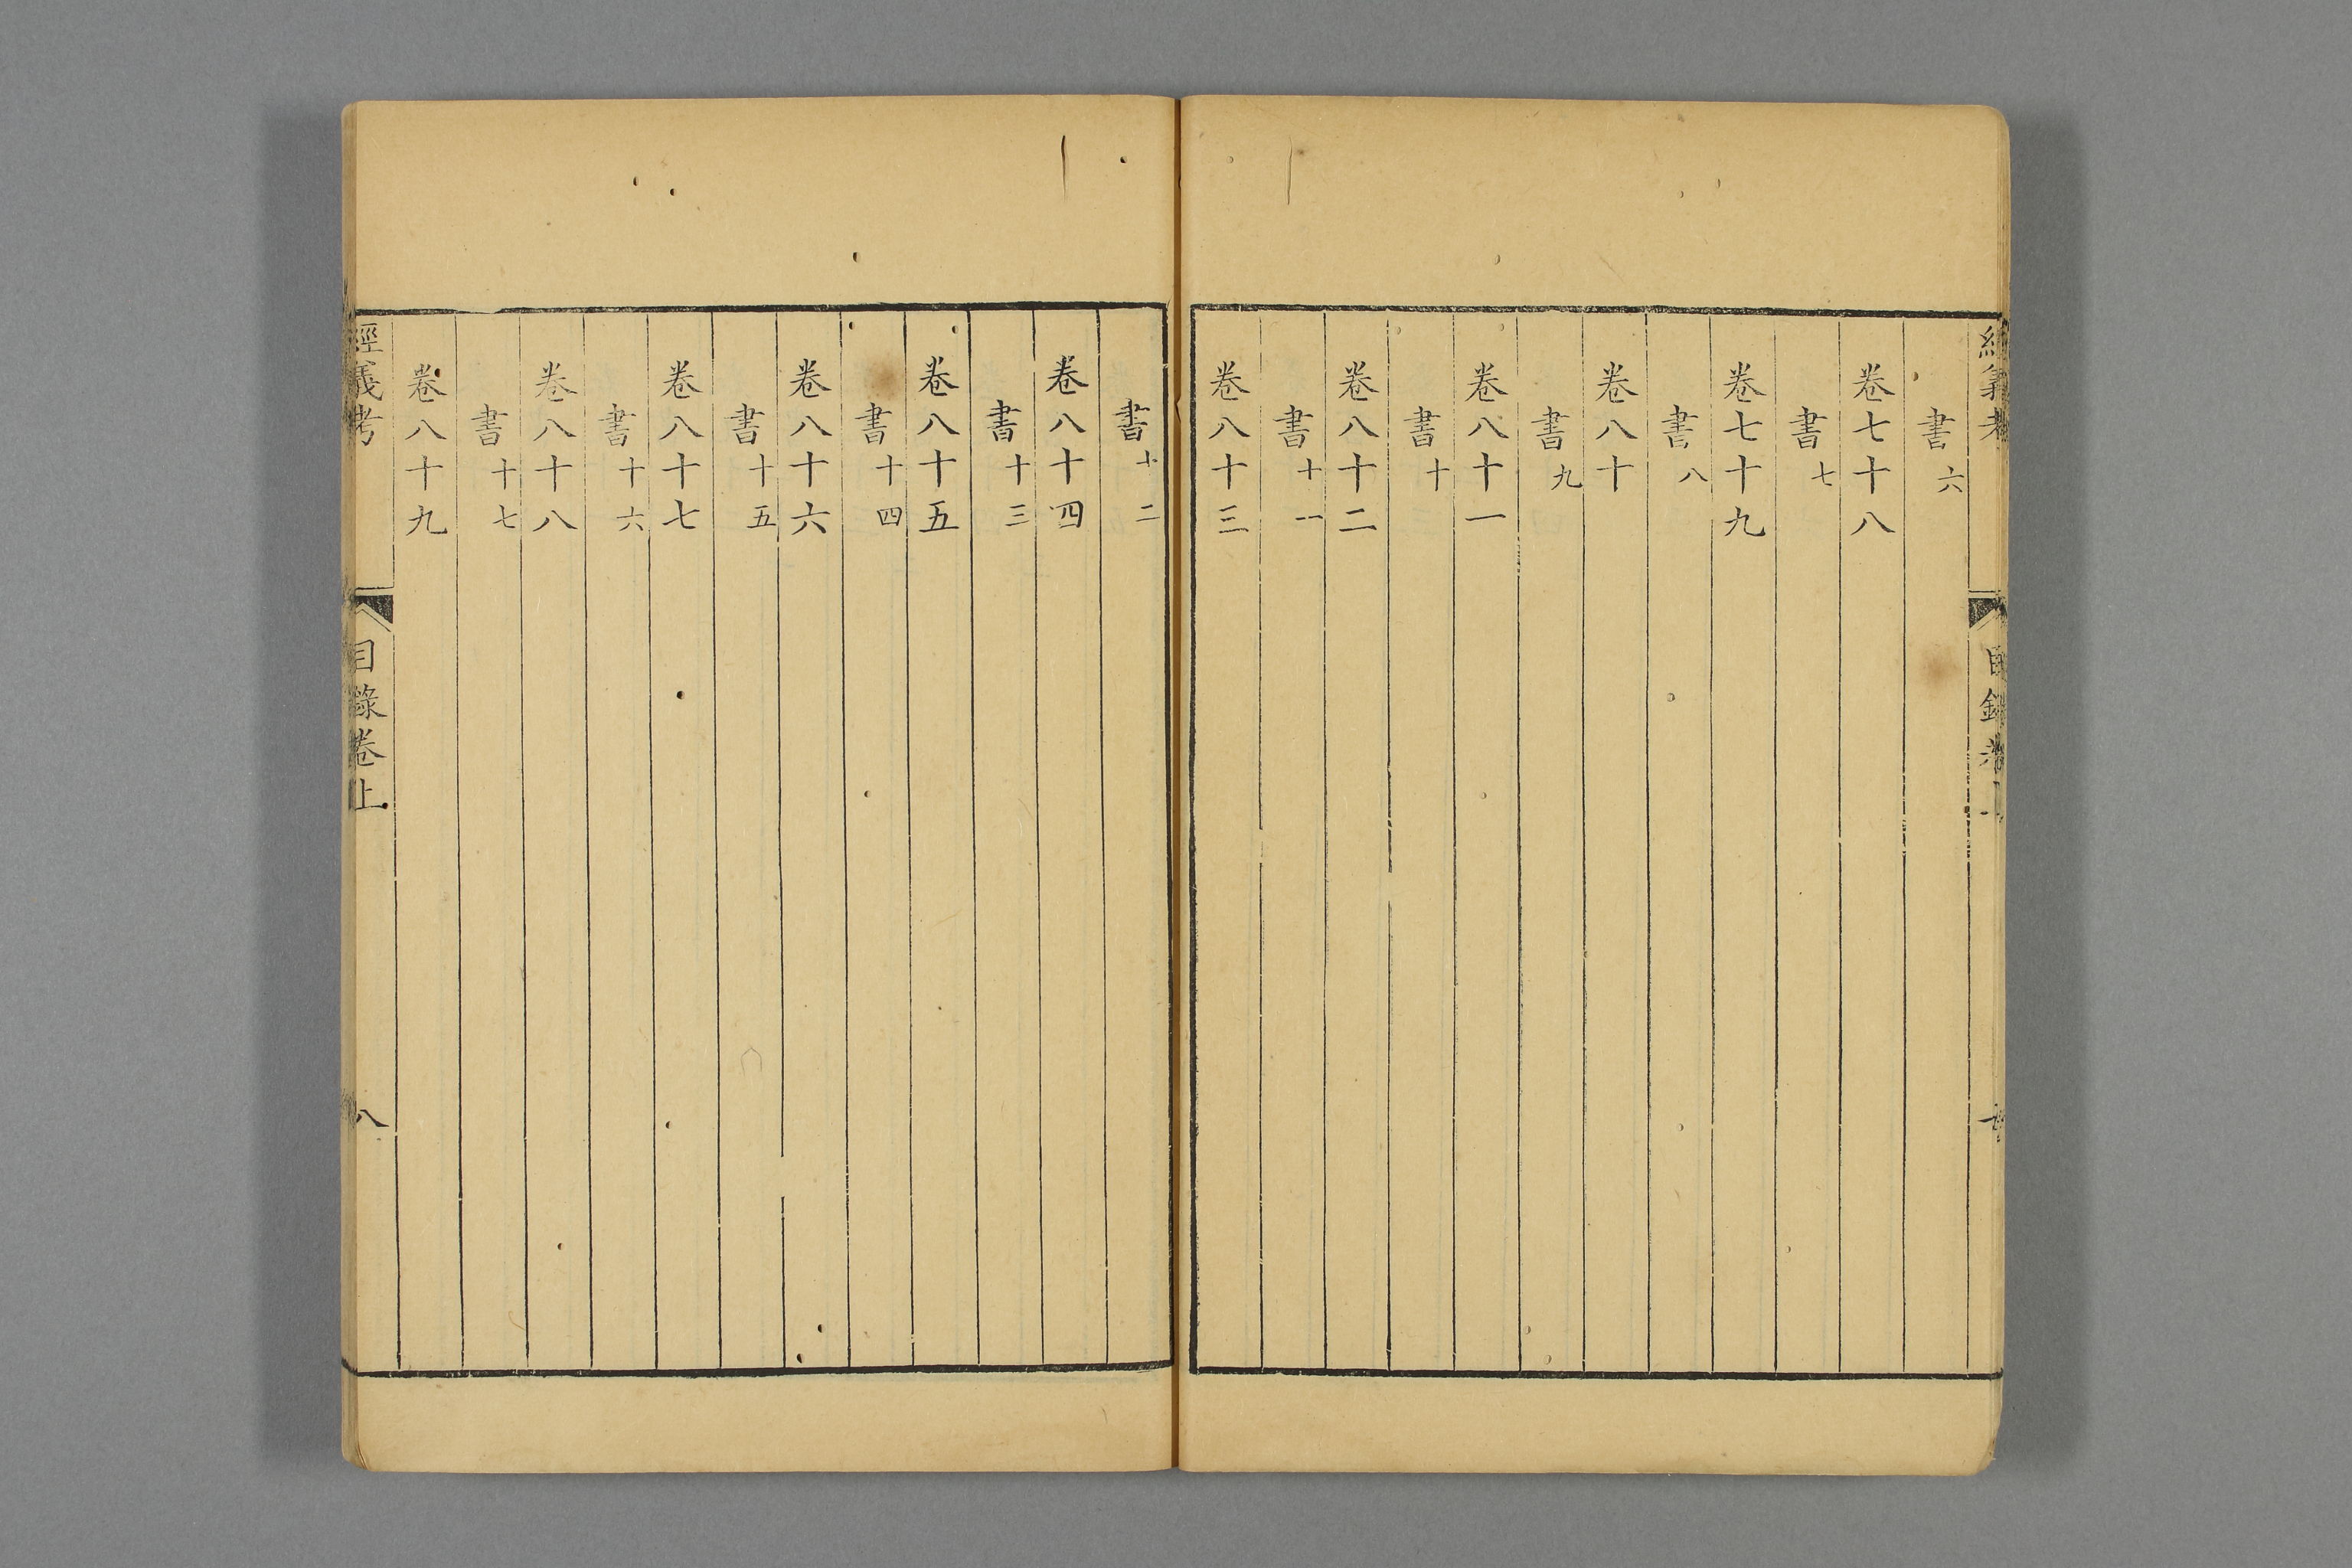 書六
卷七十八
書七
卷七十九
書八
卷八十
書九
卷八十一
書十
卷八十二
書十一
卷八十三
書十二
卷八十四
書十三
卷八十五
書十四
卷八十六
書十五
卷八十七
書十六
卷八十八
書十七
卷八十九
經義考
目錄卷上
八